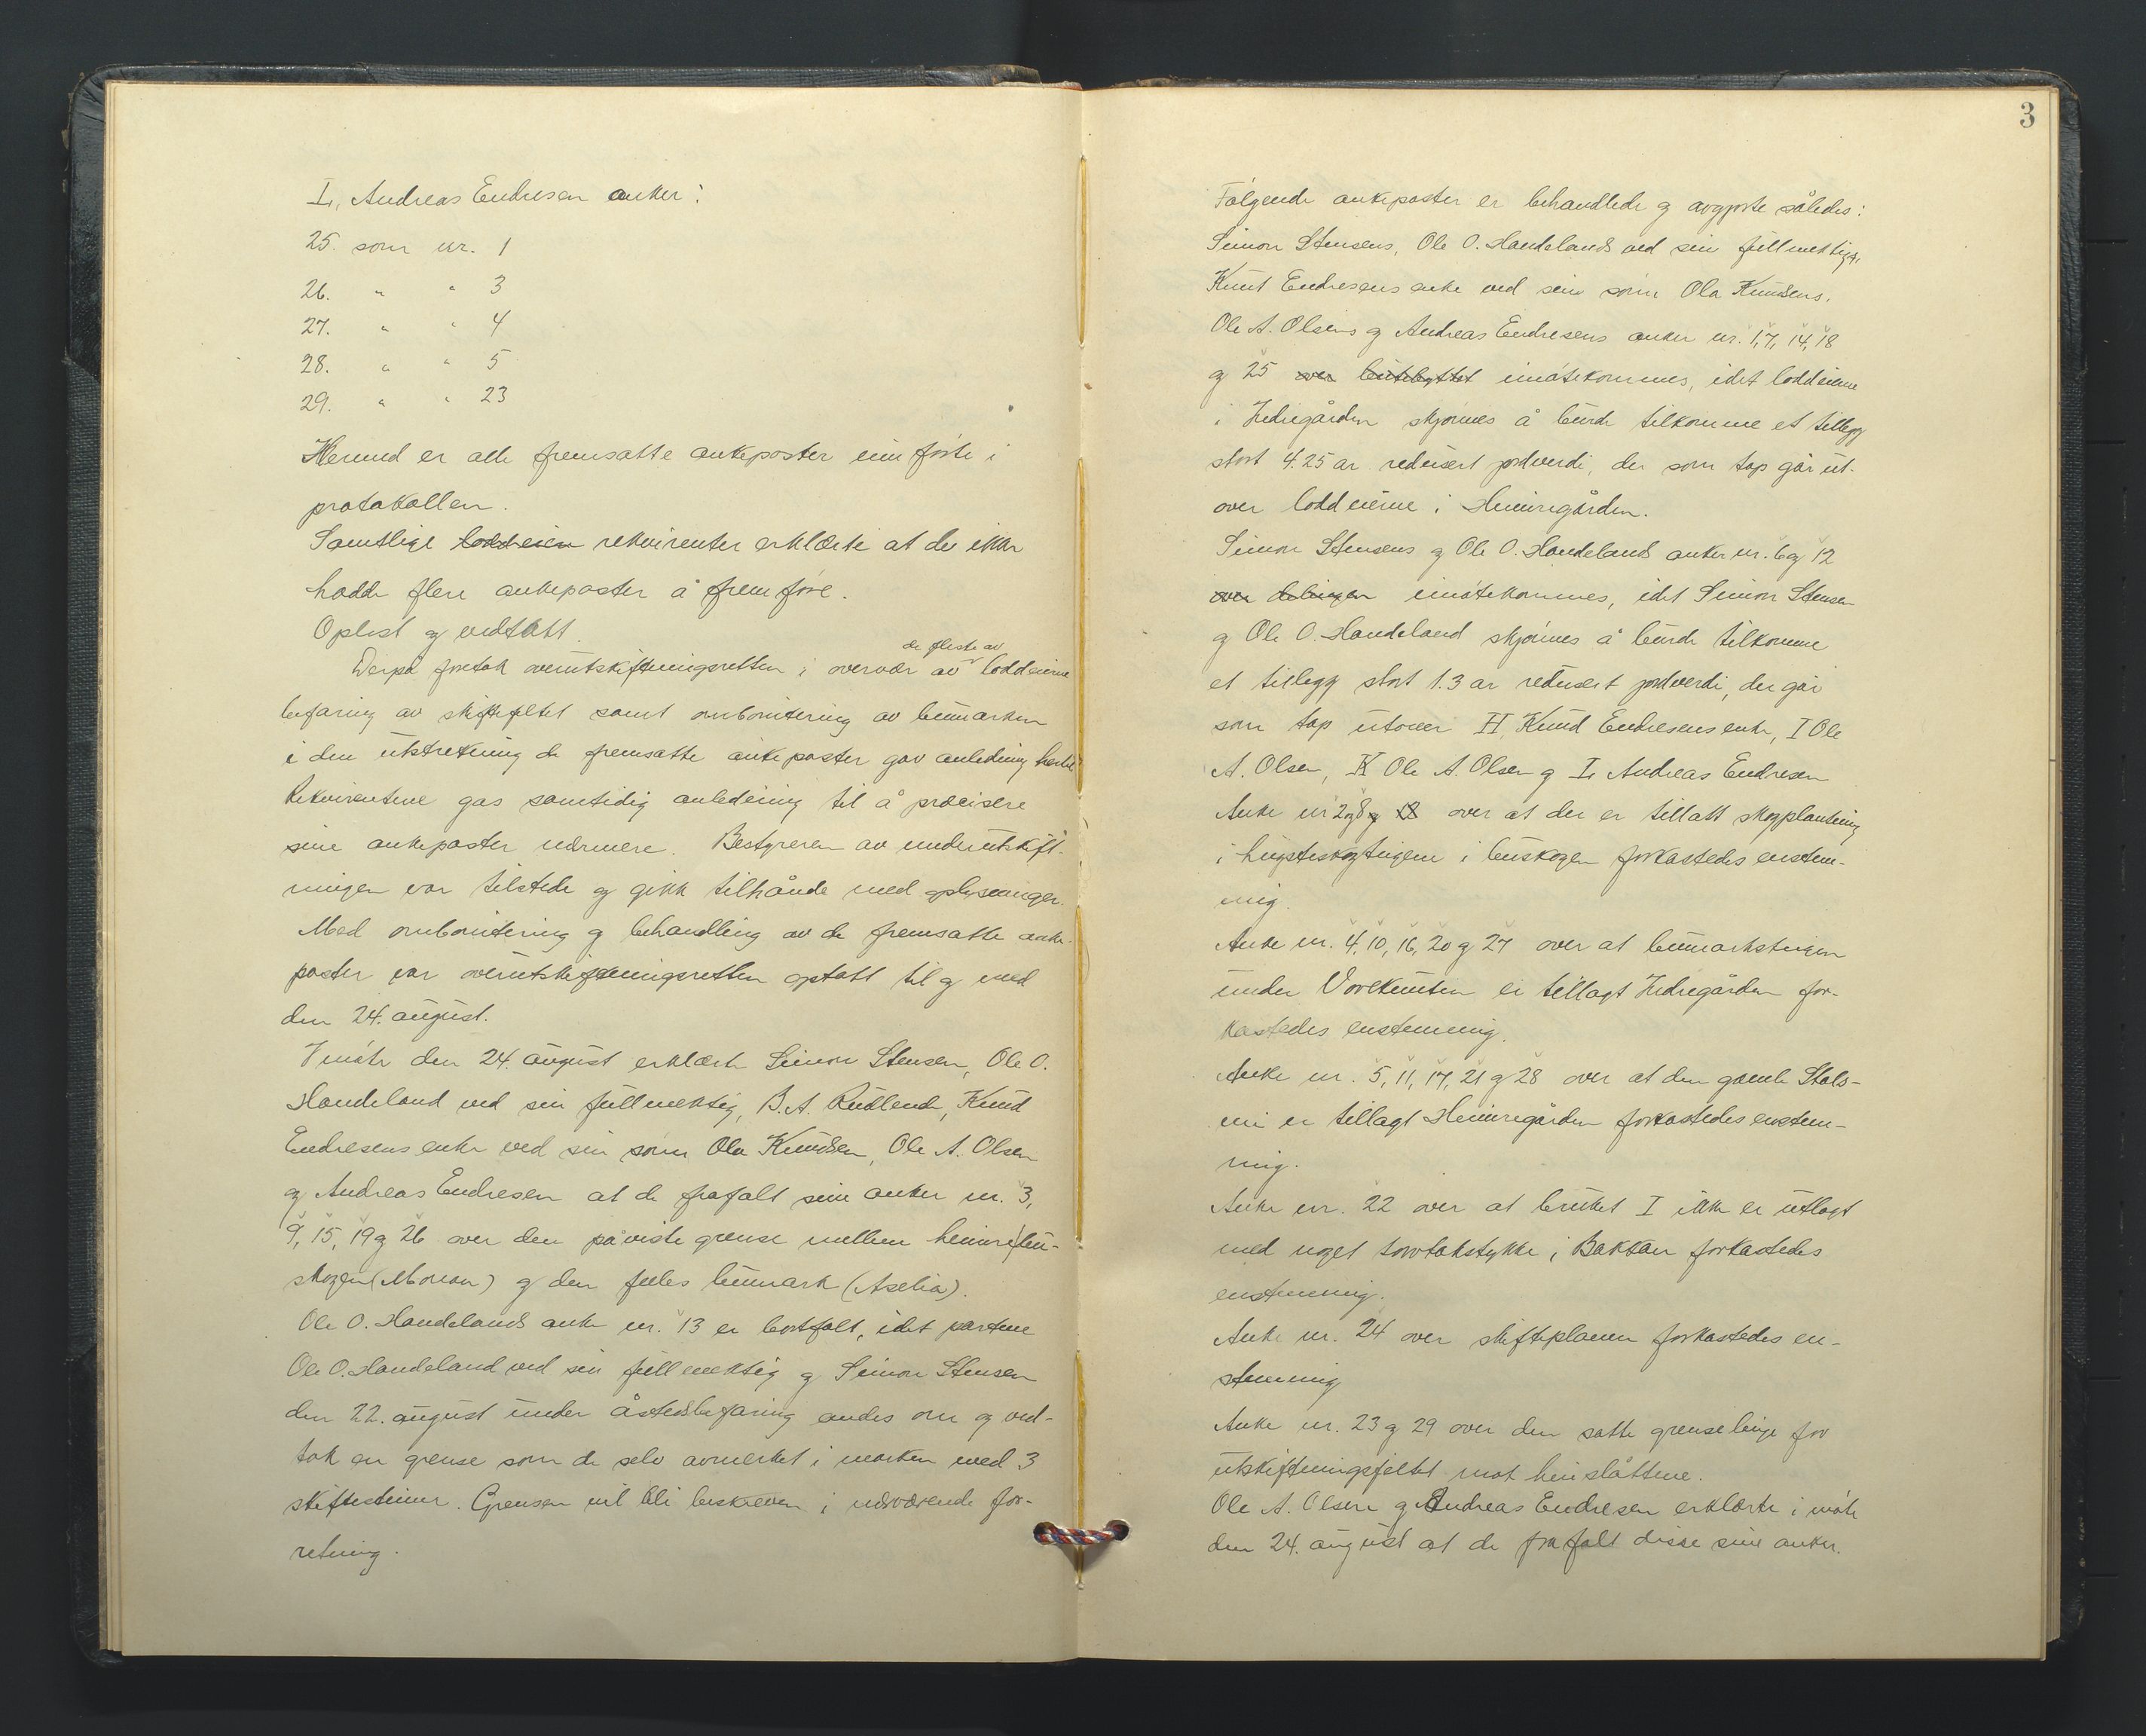 L, Andreas Endresen anker:
25. som nr. 1
26. " " 3
27. " " 4
28. " " 5
29. " " 23
Hermed er alle fremsatte ankeposter inn förte i
protokollen.
Samtlige loddeiere rekvirenter erklærte at de ikke
hadde flere ankeposter å frem före.
Oplest og vedtatt.
de fleste av
Derpå foretok overutskiftningsretten i overvær av loddeierne
befaring av skiftefeltet samt ombonitering av bumarken
i den utstrekning de fremsatte ankeposter gav anledning hertil
Rekvirentene gas samtidig anledning til å præcisere
sine ankeposter nærmere. Bestyreren av underutskift-
ningen var tilstede og gikk tilhånde med oplysninger.
Med ombonitering og behandling av de fremsatte anke-
poster var overutskiftningsretten optatt til og med
den 24. august.
I möte den 24. august erklærte Simon Stensen, Ole O.
Handeland ved sin fullmektig, B. A. Rudlende, Knud
Endresens enke ved sin sönn Ola Knudsen, Ole A. Olsen
og Andreas Endresen at de frafalt sine anker nr. 3,
9, 15, 19 og 26 over den påviste grense mellem heimre bu-
skogen (Moreau) og den felles bumark (Aselia).
Ole O. Handelands anke nr. 13 er bortfalt, idet partene
Ole O. Handeland ved sin fullmektig og Simon Stensen
den 22. august under åstedsbefaring endes om og ved-
tok en grense som de selv avmerket i marken med 3
skiftesteiner. Grensen vil bli beskreven i nærværende for-
retning.
3
Følgende ankeposter er behandlede og avgjorte således:
Simon Stensens, Ole O. Handelands ved sin fullmektig,
Knut Endresens enke ved sin sönn Ola Knudsens,
Ole A. Olsens og Andreas Endresens anker nr. 1, 7, 14, 18
og 25 over butebyttet imötekommes, idet loddeierne
i Indregården skjönnes å burde tilkomme et tillegg
stort 4.25 ar redusert jordverdi, der som tap går ut-
over loddeierne i Heimregården.
Simon Stensens og Ole O. Handelands anker nr. 6 og 12
over delingen imötekommes, idet Simon Stensen
og Ole O. Handeland skjönnes å burde tilkomme
et tillegg stort 1.3 ar redusert jordverdi, der går
som tap utover H, Knud Endresens enke, I Ole
A. Olsen, K Ole A. Olsen og L Andreas Endresen
Anke nr 2 og 8 og 18 over at der er tillatt skogplanting
i i buskogen forkastedes enstem-
mig.
Anke nr. 4, 10, 16, 20 og 27 over at bumarksteigen
under Vorekunten er tillagt Indregården for-
kastedes enstemmig.
Anke nr. 5, 11, 17, 21 og 28 over at den gamle Stöls-
mi er tillagt Heimregården forkastedes enstem-
mig.
Anke nr. 22 over at bruket I ikke er utlagt
med noget torvtakstykke i Baktær forkastedes
enstemmig.
Anke nr. 24 over skifteplanen forkastedes en-
stemmig
Anke nr. 23 og 29 over den satte grenselinje for
utskiftningsfeltet mot heislåttene.
Ole A. Olsen og Andreas Endresen erklærte i möte
den 24. august at de frafalt disse sine anker.